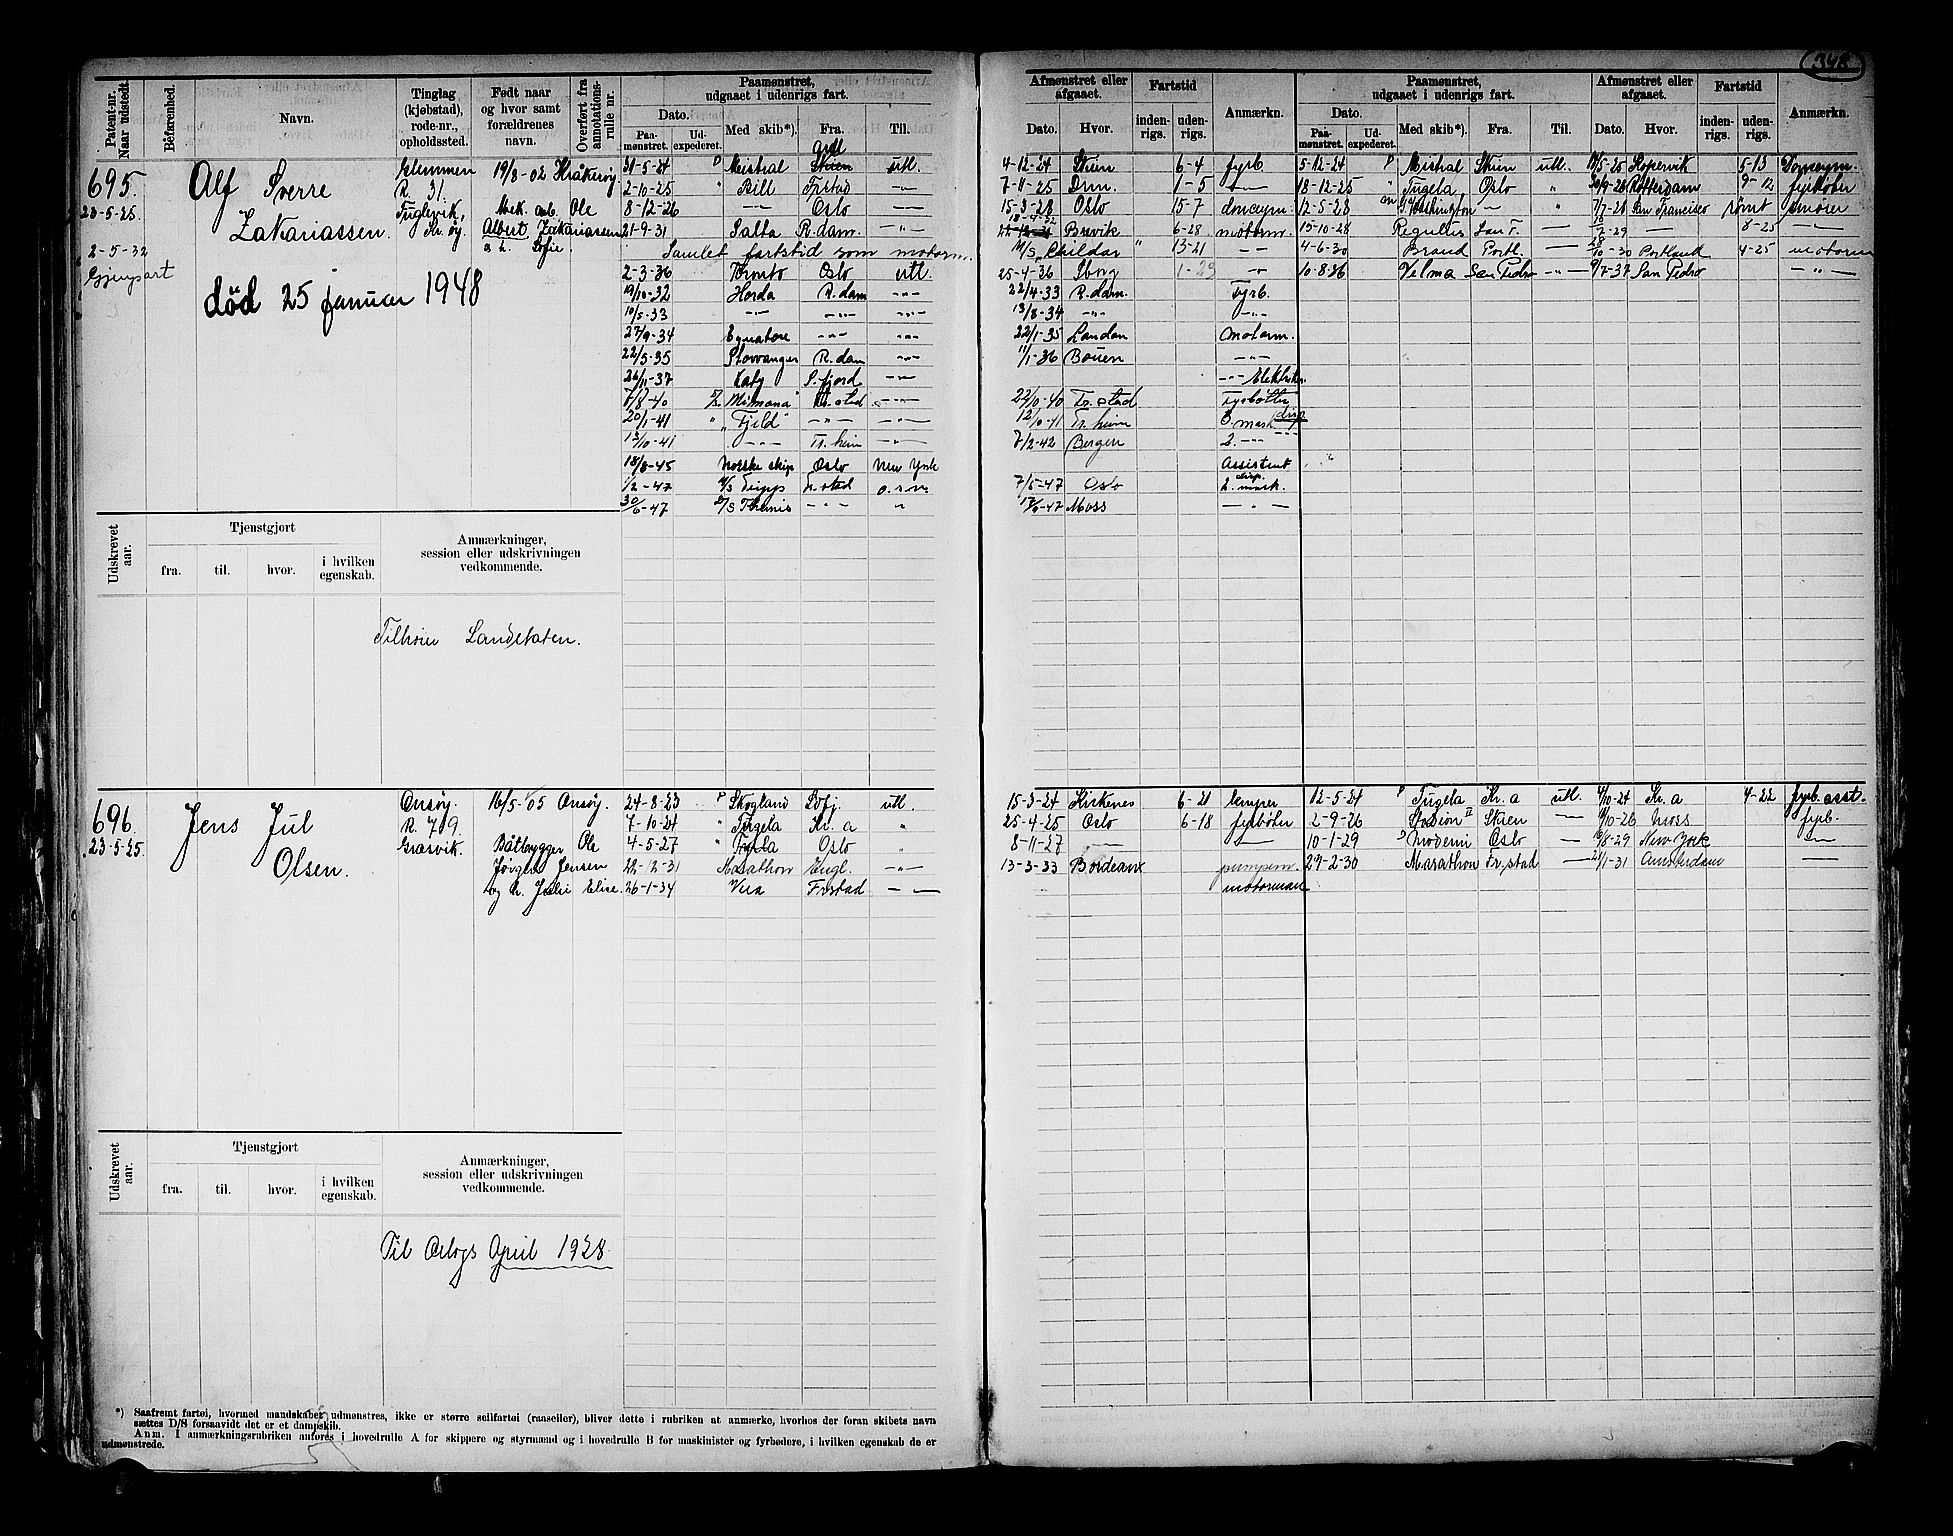 348
Patent-nr. Naar udstedt.
Béfarenhed.
Navn.
Tinglag (kjøbstad), rode-nr., opholdssted.
Født naar og hvor samt forældrenes navn.
Overført fra annotations-rulle nr.
Paamønstret, udgaaet i udenrigs fart.
Dato.
Paa-mønstret.
Ud-expederet.
Med skib*).
Fra.
Til.
Afmønstret eller afgaaet.
Dato.
Hvor.
Fartstid
inden-rigs.
uden-rigs.
Anmærkn.
Paamønstret, udgaaet i udenrigs fart.
Dato.
Paa-mønstret.
Ud-expederet.
Med skib*).
Fra.
Til.
Afmønstret eller afgaaet.
Dato.
Hvor.
Fartstid
inden-rigs.
uden-rigs.
Anmærkn.
695
23-5-25.
2-5-32
Gjenpart
Alf Sverre
Zakariassen.
død 25 januar 1948
Glemmen
R. 31.
Fuglevik,
Kr. øy.
19/8-02 Kråkerøy
Mek. arb. Ole
Albert Zakariassen
Sofie.
31-5-24 Mistral Skien utl. 4-12-24 Skien 6-4 fyrb. 5-12-24 Mistral Skien utl. Kopervik 5-13
2-10-25 " Bill Frstad -"- 7-11-25 Drm. 1-5 18-12-25 " Tugela Oslo " Rotterdam 9-12 fyrbøter
8-12-26 -"- Oslo 15-3-28 Oslo 15-7 donceym. 12-5-28 Washington - " San Francisco rømt smører
21-9-31 Salta R.dam. -"- 18-4-32 Brevik 6-28 motorm. 15-10-28 Regulus San F. 8-25
Samlet fartstid som motorm. M/S Childar " 13-21 -- 4-6-30 Brand Portl. 10-30 Portland 4-25 motorm
2-3-36 Toronto Oslo utl. 25-4-36 Sborg 1-23 10-8-36 Velma San Pedro -"- 9/7-37 San Pedro -"-
19/10-32 Horda R.dam -"- 22/4-33 R.dam. Fyrb.
10/5-33 -"- -"- -"- 13/8-34 -"- -"-
27/9-34 Equatore -"- -"- 22/1-35 London Motorm.
22/5-35 Stavanger R.dam -"- 11/1-36 -"-
26/11-37 Katy S.fjord -"- -"- Elektriker.
7/8-40 "Mimona" Fr.stad -"- 22/10-40 Fr.stad Fyrbøter
20/1-41 " "Fjeld" -"- -"- 12/10-41 Tr.heim 3. mask. disp
13/10-41 -"- Tr.heim -"- 7/2-42 Bergen 2. -"-
18/8-45 Norske skip Oslo New York Assistent
1/2-47 Fr.stad o.s.v. 7/5-47 Oslo disp. 2. mask.
30/6-47 D/S Themis -"- " Moss -"-
Udskrevet aar.
Tjenstgjort
fra.
til.
hvor.
i hvilken egenskab.
Anmærkninger,
session eller udskrivningen
vedkommende.
Tilhører Landstaten.
696
23-5-25.
Jens Jul
Olsen.
Onsøy.
R. 79.
Græsvik.
16/5-05 Onsøy.
Båtbygger Ole
Jørgen Jensen
og h. Julie Elise.
24-8-23 Skogland utl. 15-3-24 Kirkenes 6-21 lemper 12-5-24 Tugela Kr.a utl. 4/10-24 Kr.a 4-22 fyrb. asst.
7-10-24 " Tugela Kr.a " 25-4-25 Oslo 6-18 fyrbøter 2-9-26 Skien 10-26 Moss fyrb.
4-5-27 " Oslo " 8-11-27 10-1-29 Modemi Oslo 8-29 New York
22-12-31 Marathon Engl. -"- 13-3-33 Bordeaux pumpem. 27-2-30 Marathon Fr.stad 1-31 Amsterdam
26-1-34 Vera Frstad motorman
Udskrevet aar.
Tjenstgjort
fra.
til.
hvor.
i hvilken egenskab.
Anmærkninger,
session eller udskrivningen
vedkommende.
Til Orlogs April 1928
*) Saafremt fartøi, hvormed mandskaber udmønstres, ikke er større seilfartøi (raaseiler), bliver dette i rubriken at anmerke, hvorhos der foran skibets navn
sættes D/S forsaavidt det er et dampskib.
Anm. I anmærkningsrubriken anføres i hovedrulle A for skippere og styrmænd og i hovedrulle B for maskinister og fyrbødere, i hvilken egenskab de er
udmønstrede.